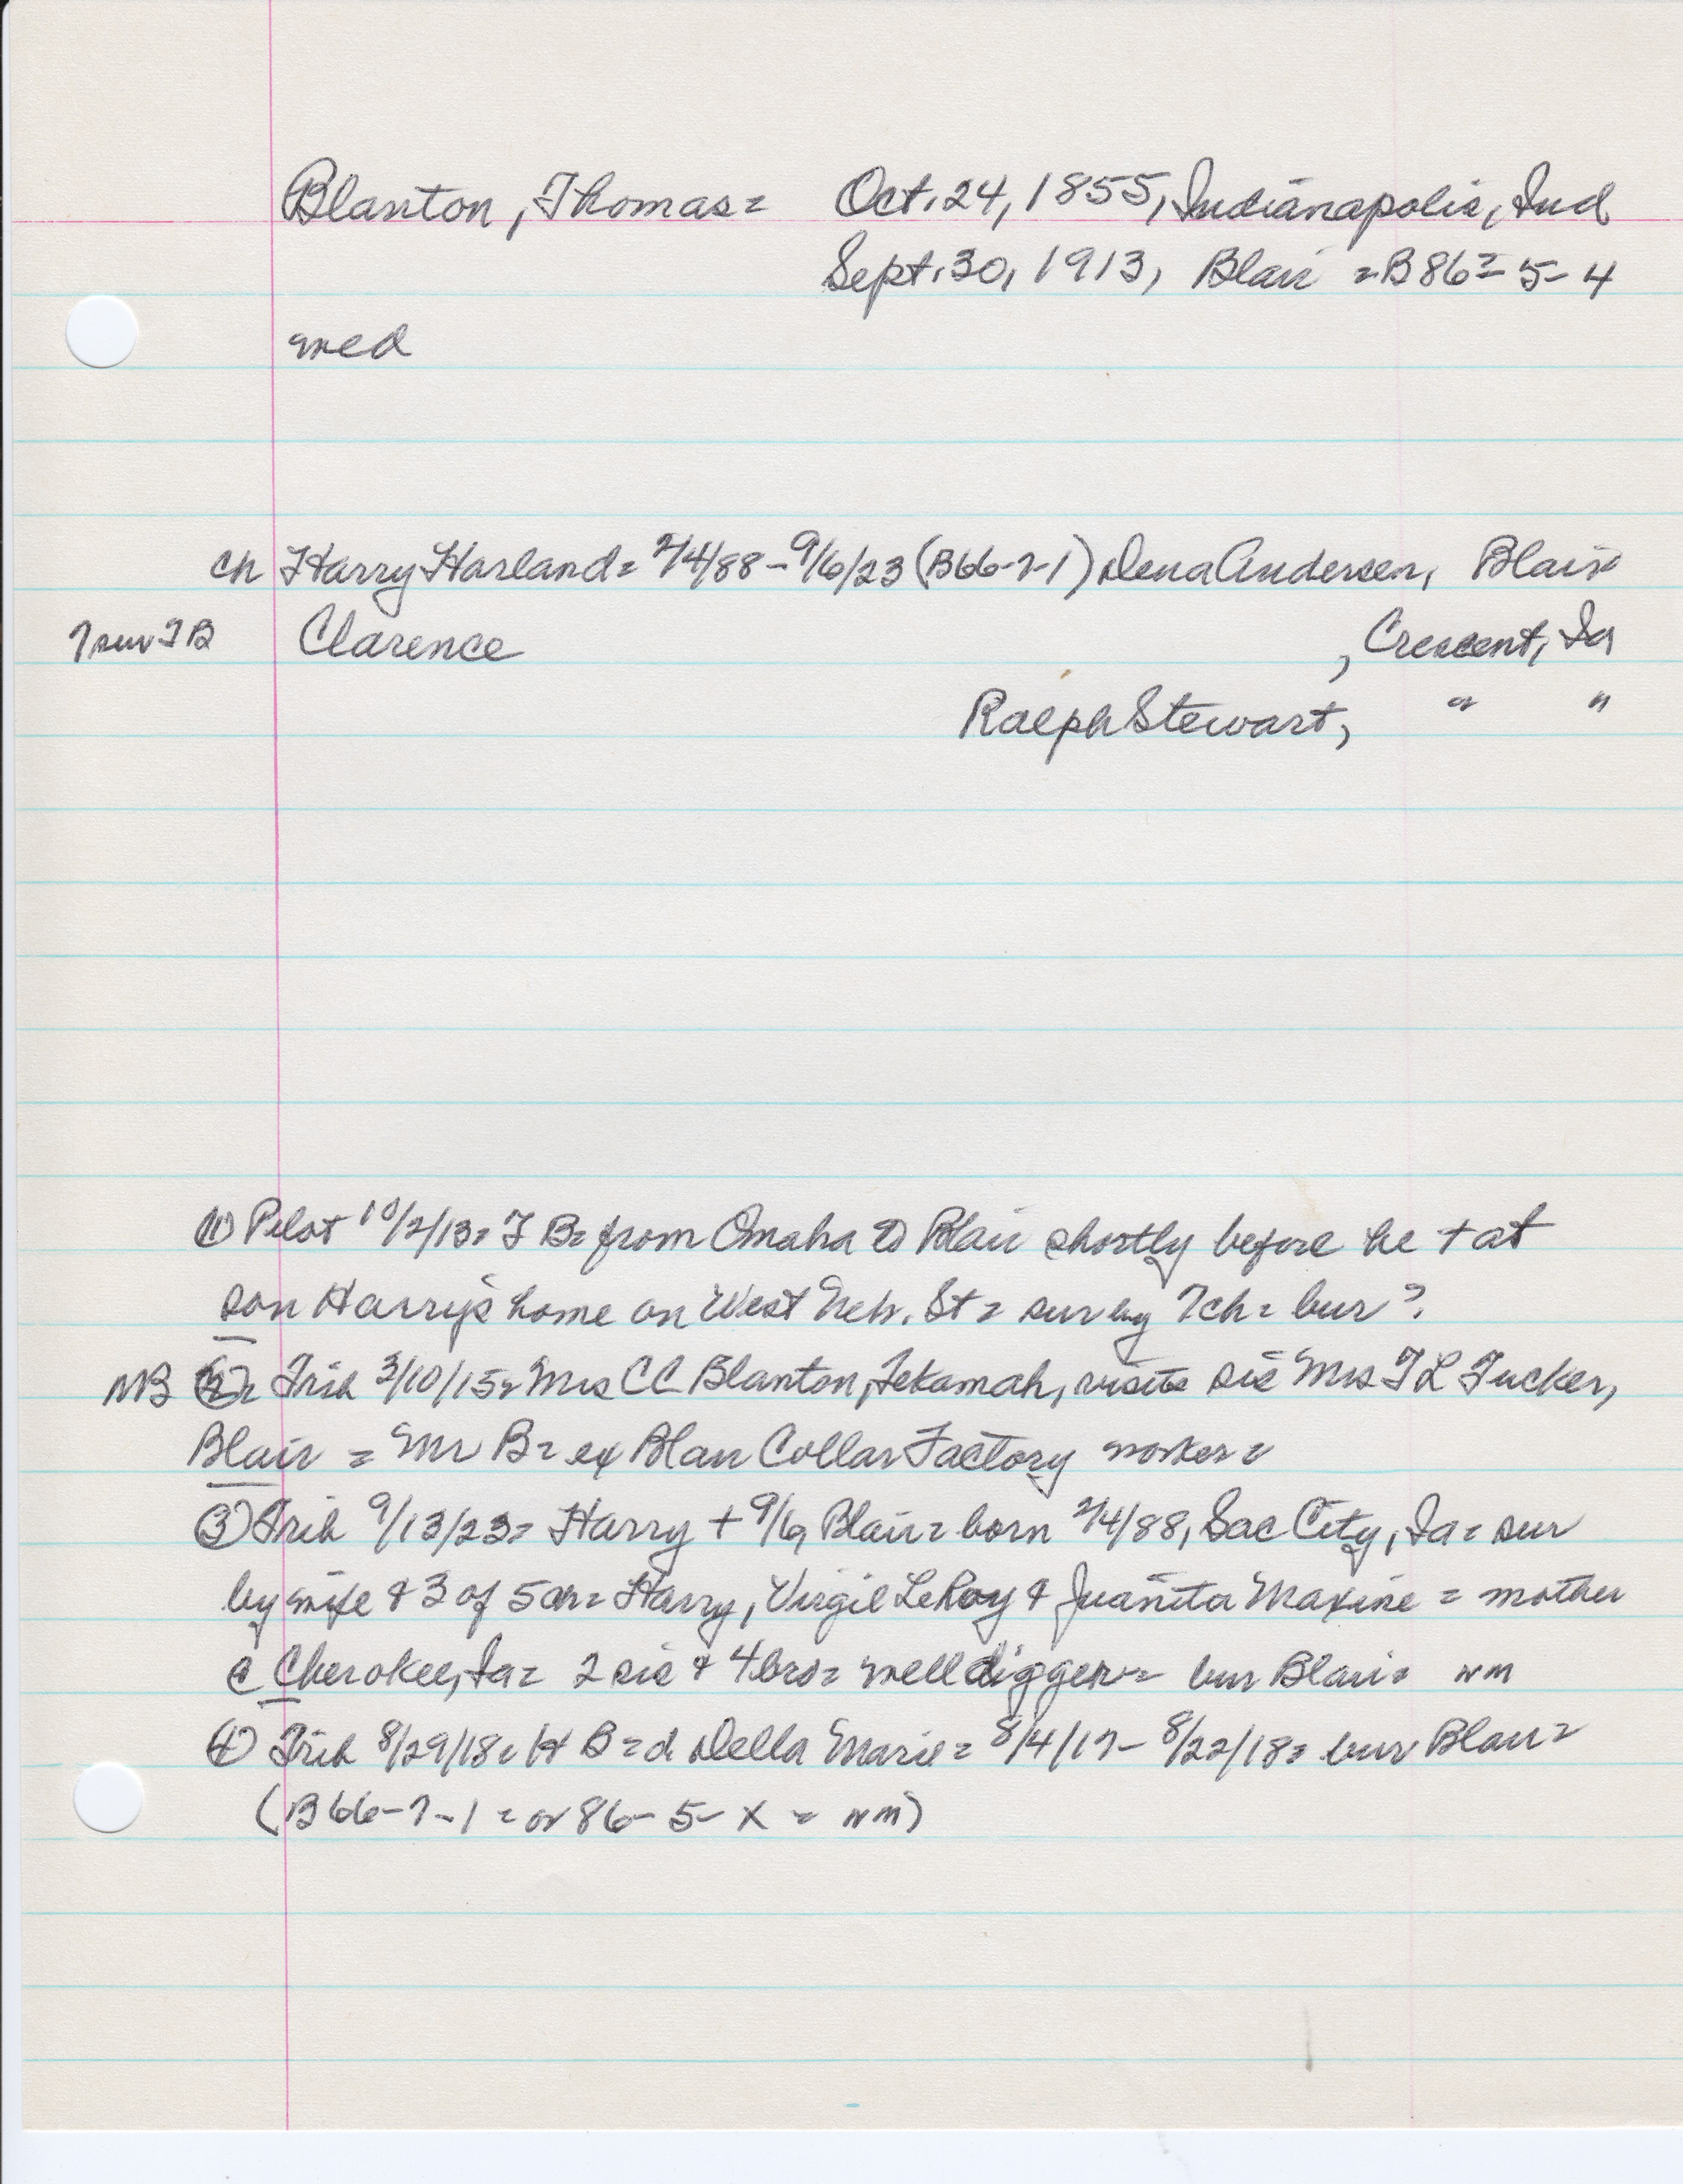 Blanton, Thomas= Oct. 24, 1855, Indianapolis, Ind
Sept. 30, 1913, Blair =B86=5-4
med
ch Harry Harland= 2/4/88-9/6/23 (B66-7-1) Dena Andersen, Blair=
7 sur TB Clarence , Crescent, Ia
Ralph Stewart, " "
(1) Pilot 10/2/13= T B= from Omaha to Blair shortly before he + at
son Harry's home on West Neb. St= sur by 7ch= bur?
NB (2)= Trib 3/10/15= Mrs CC Blanton, Tekamah, visits sis Mrs T L Tucker,
Blair = Mr B= ex Blair Collar Factory worker=
(3) Trib 9/13/23= Harry + 9/6, Blair= born 2/4/88, Sac City, Ia= sur
by wife & 3 of 5 ch= Harry, Virgil LeRoy & Juanita Maxine = mother
@ Cherokee, Ia= 2 sis & 4 bro= well digger= bur Blair= nm
(4) Trib 8/29/18= H B=d Della Marie= 8/4/17- 8/22/18= bur Blair=
(B66-7-1= or 86-5-X= nm)